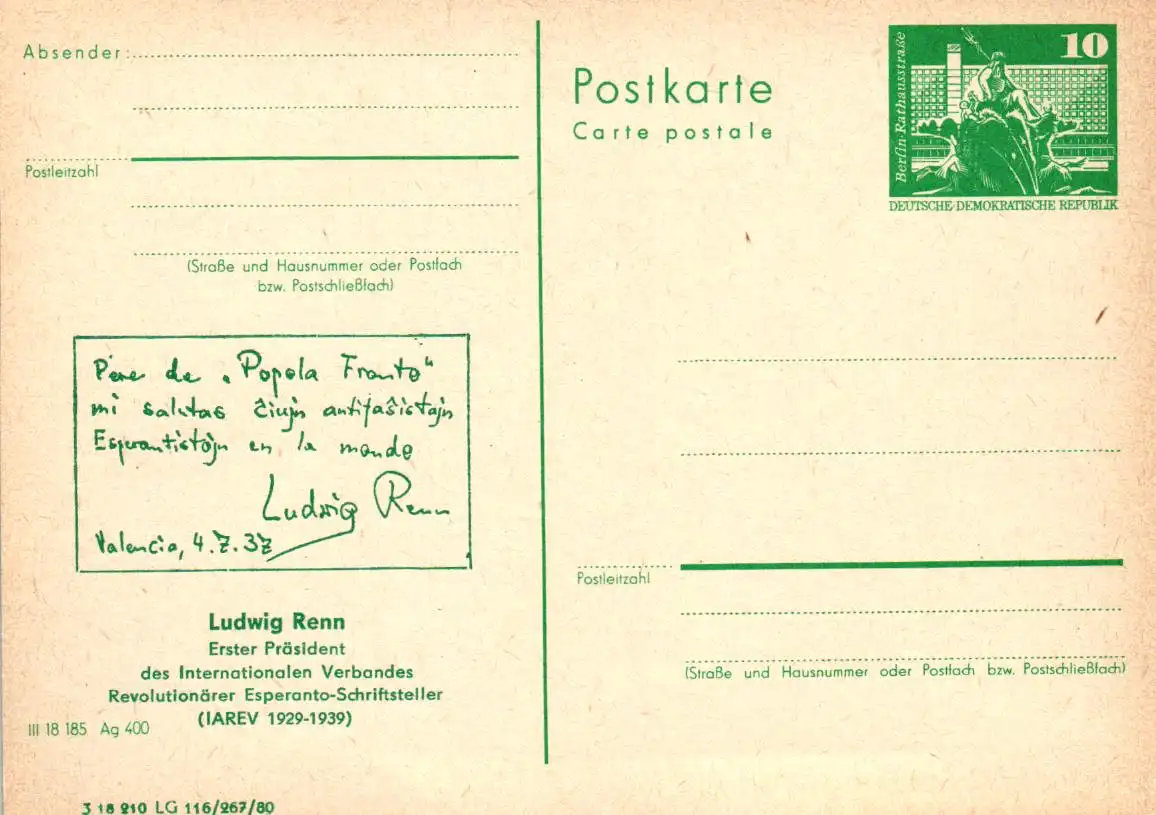 Absender:
Postleitzahl
(Straße und Hausnummer oder Postfach
bzw. Postschließfach)
Pere de „Popola Fronto“
mi salutas ĉiujn antifaŝistajn
Esperantistojn en la mondo
Ludwig Renn
Valencia, 4.7.37
Ludwig Renn
Erster Präsident
des Internationalen Verbandes
Revolutionärer Esperanto-Schriftsteller
(IAREV 1929-1939)
III 18 185 Ag 400
3 18 210 LG 116/267/80
Postkarte
Carte postale
10
Berlin·Rathausstraße
DEUTSCHE DEMOKRATISCHE REPUBLIK
Postleitzahl
(Straße und Hausnummer oder Postfach bzw. Postschließfach)